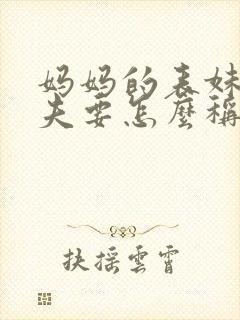 妈妈的表妹
夫要怎麼稱
扶摇雲霄